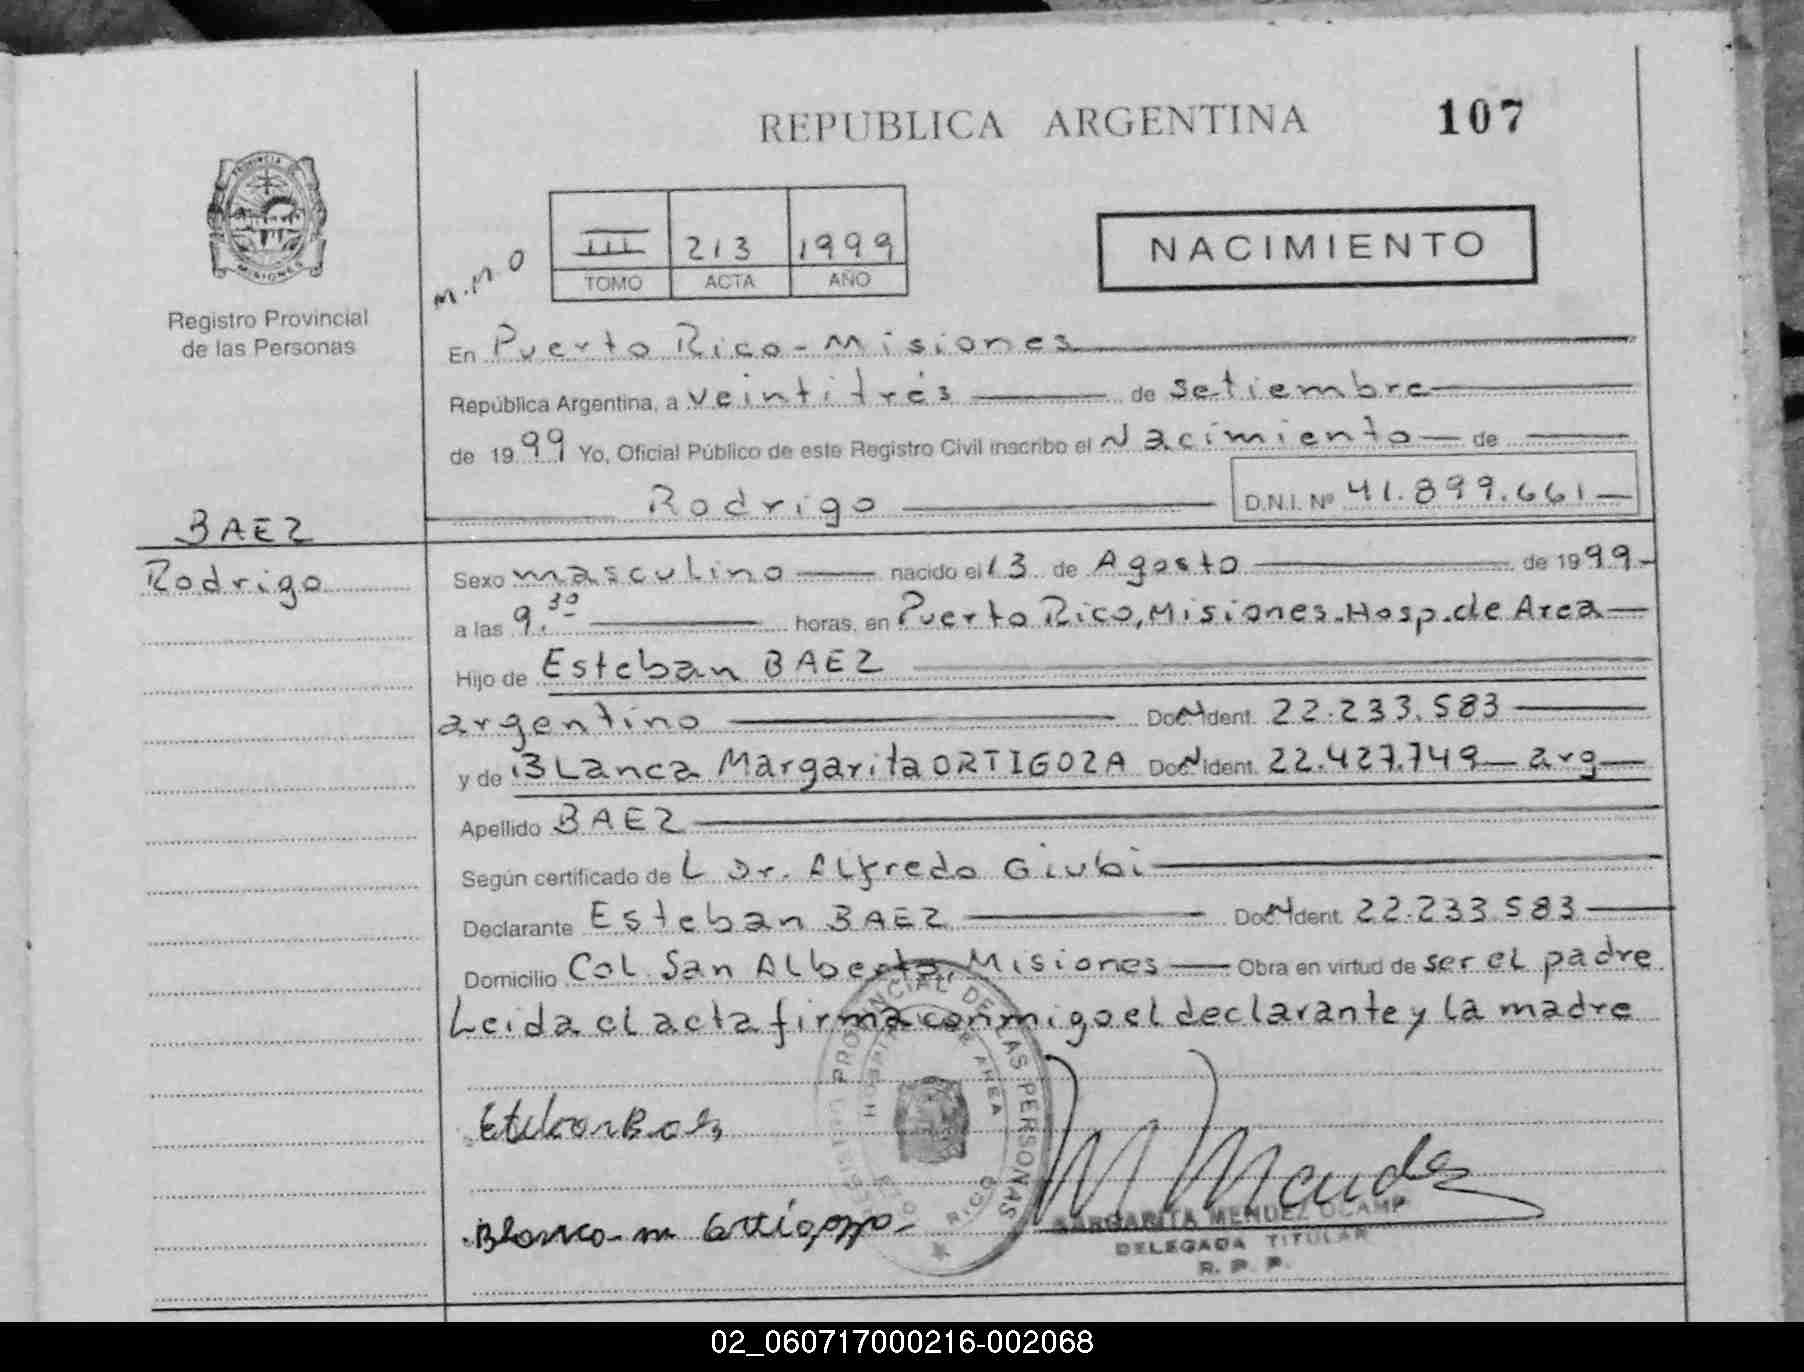 REPUBLICA ARGENTINA 107
PROVINCIA DE
MISIONES
Registro Provincial
de las Personas
M.M.O
III 213 1999
TOMO ACTA AÑO
NACIMIENTO
En Puerto Rico - Misiones
República Argentina, a veintitrés de setiembre
de 1999 Yo, Oficial Público de este Registro Civil inscribo el Nacimiento de
Rodrigo D.N.I. Nº 41.899.661
BAEZ
Rodrigo
Sexo masculino nacido el 13 de Agosto de 1999
a las 9.30 horas, en Puerto Rico, Misiones. Hosp. de Area
Hijo de Esteban BAEZ
argentino Doc N Ident. 22.233.583
y de Blanca Margarita ORTIGOZA Doc N Ident. 22.427.749 arg
Apellido BAEZ
Según certificado de L Dr. Alfredo Giubi
Declarante Esteban BAEZ Doc N Ident. 22.233.583
Domicilio Col. San Alberto, Misiones Obra en virtud de ser el padre
Leida el acta firma conmigo el declarante y la madre
REGISTRO PROVINCIAL DE LAS PERSONAS
HOSPITAL DE AREA
PTO RICO
Esteban Baez
M Mendez
Blanca M Ortigoza
MARGARITA MENDEZ OCAMP
DELEGADA TITULAR
R. P. P.
02_060717000216-002068